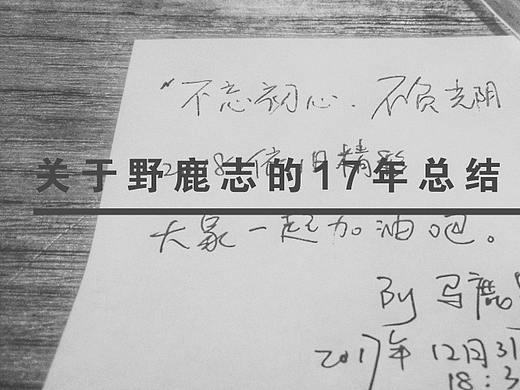 "不忘初心.不负光阴
关于野鹿志的17年总结
大家一起加油吧。
By 马鹿
2017年12月31
18:3